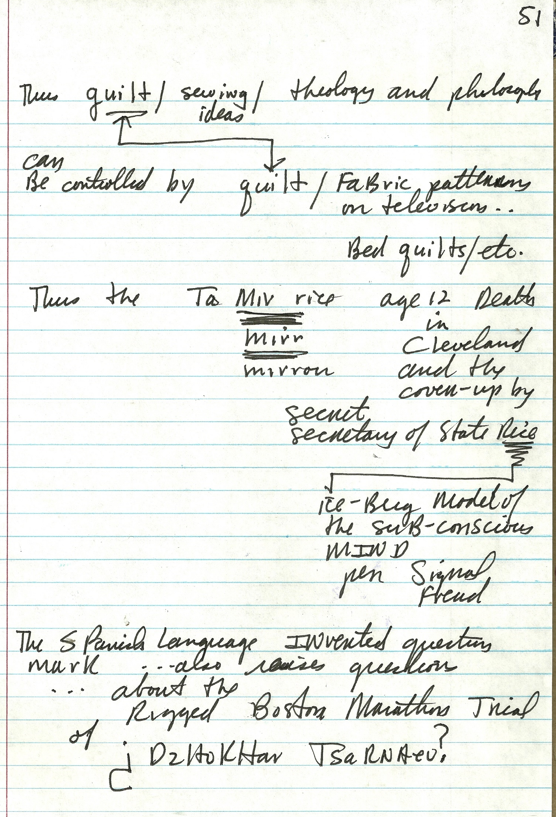 51
Thus guilt / sewing / theology and philosoph
ideas
can
Be controlled by quilt / FaBric patterns
on television..
Bed quilts/etc.
Thus the Ta Mir rice age 12 Death
in
Mirr Cleveland
mirror and the
cover-up by
secret
secretary of State Rice
ice-Burg Model of
the suB-conscious
MIND
per Signal
Freud
The Spanish Language INvented question
mark ...also raises question
... about the
Rigged Boston Marathon Trial
of
¿ DzHoKHar TSaRNAev?